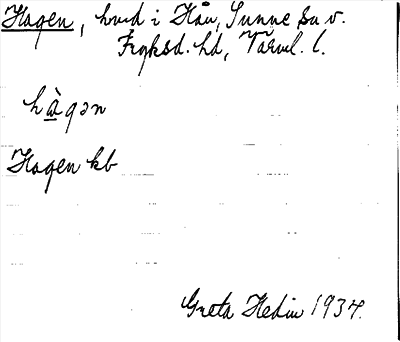 Hagen, hmd i Hån, Sunne sn v.
Fryksd. hd, Värml. l.
hàgən
Hagen kb
Greta Hedin 1934.